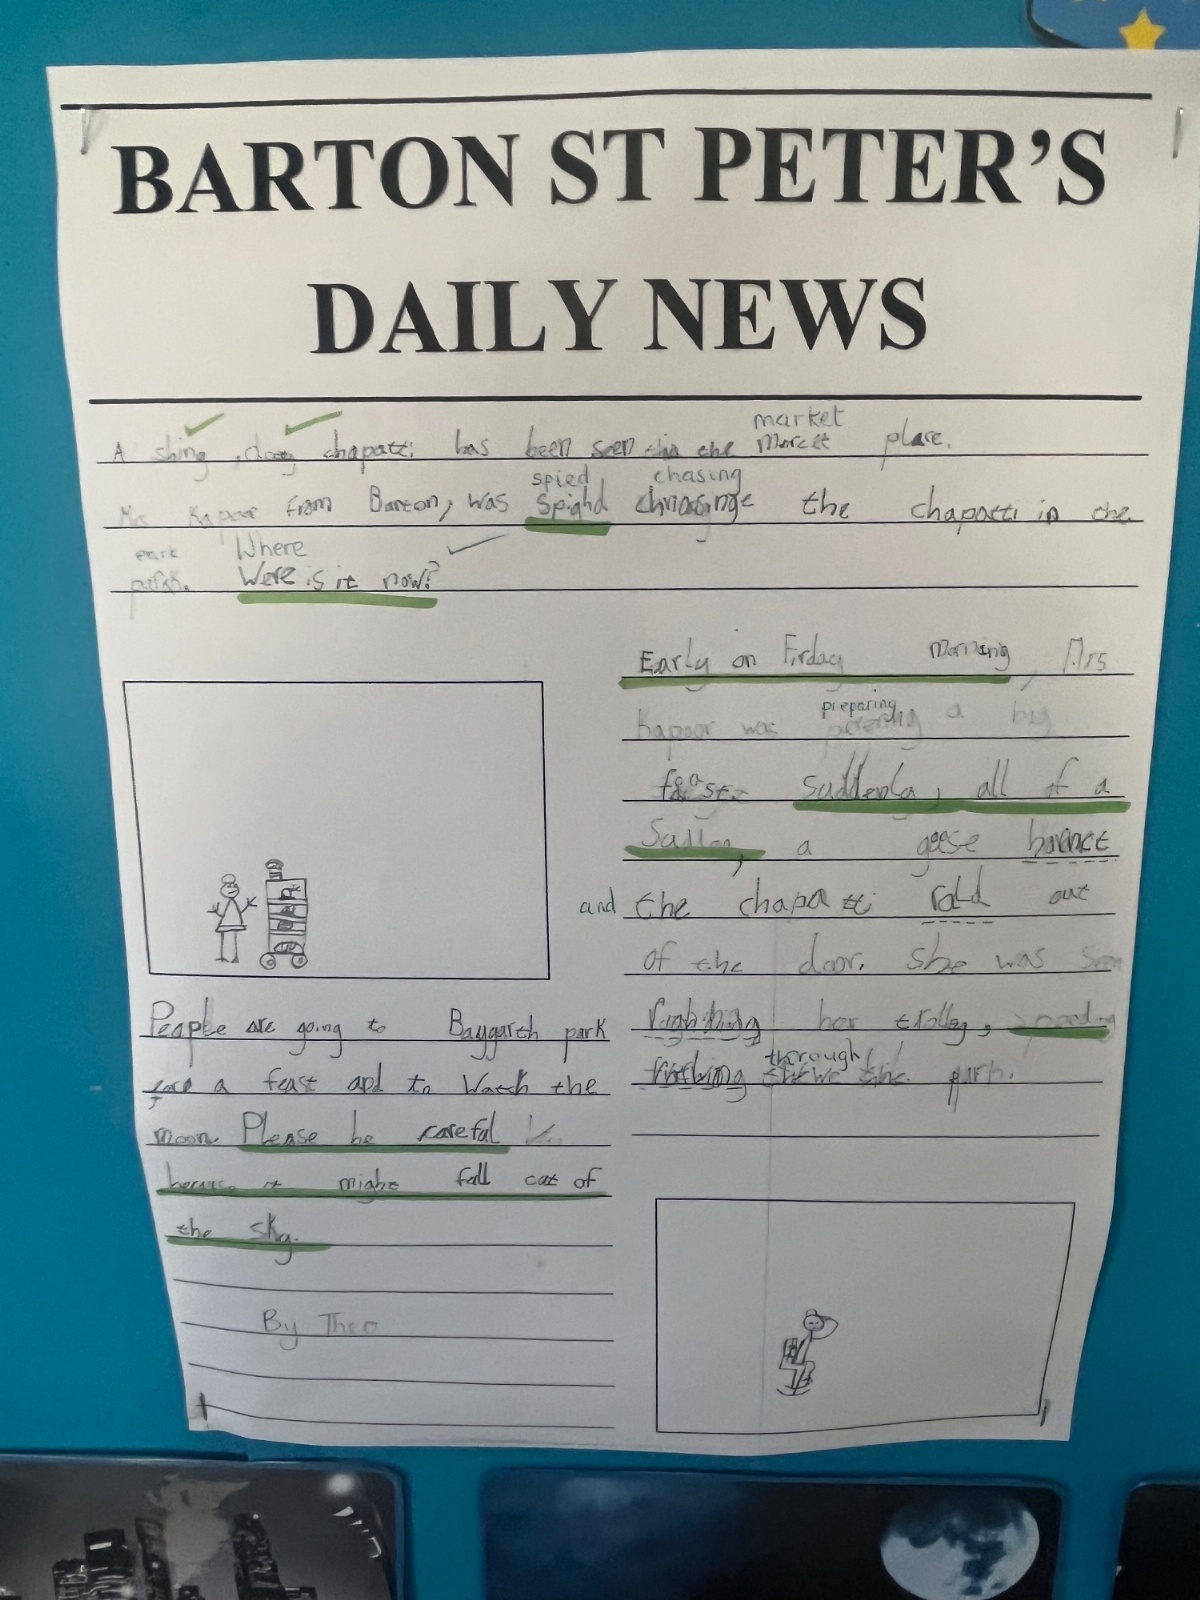 BARTON ST PETER'S
DAILY NEWS
market
A shing, doeg chapatti has been seen in the place.
spied chasing
Mrs Kapoor from Barton, was Spighd the chapatti in the
park Where
parsk. Were is it now?
Early on Firday morning, Mrs
preparing
Kapoor was a big
feast. Suddenla, all of a
a geese
and the chapatti rold out
of the door. She was seen
her trolley,
through
the park.
People are going to Baygarth park
a feast and to Watch the
moon. Please be careful
it might fall out of
the sky.
By Theo